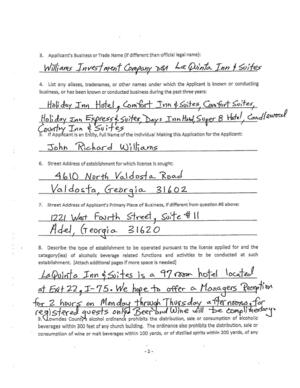 3. Applicant's Business or Trade Name (if different than official legal name):
Williams Investment Company DBA La Quinta Inn & Suites
4. List any aliases, tradenames, or other names under which the Applicant is known or conducting
business, or has been known or conducted business during the past three years:
Holiday Inn Hotel, Comfort Inn & Suites, Comfort Suites,
Holiday Inn Express & Suites, Days Inn Hotel, Super 8 Hotel, Candlewood
Country Inn & Suites
5. If Applicant is an Entity, Full Name of the Individual Making this Application for the Applicant:
John Richard Williams
6. Street Address of establishment for which license is sought:
4610 North Valdosta Road
Valdosta, Georgia 31602
7. Street Address of Applicant's Primary Place of Business, if different from question #6 above:
1221 West Fourth Street, Suite #11
Adel, Georgia 31620
8. Describe the type of establishment to be operated pursuant to the license applied for and the
category(ies) of alcoholic beverage related functions and activities to be conducted at such
establishment. [Attach additional pages if more space is needed]
LaQuinta Inn & Suites is a 97 room hotel located
at Exit 22, I-75. We hope to offer a Managers Reception
for 2 hours on Monday through Thursday afternoons, for
registered guests only. Beer and Wine will be complimentary.
9. Lowndes County's alcohol ordinance prohibits the distribution, sale or consumption of alcoholic
beverages within 300 feet of any church building. The ordinance also prohibits the distribution, sale or
consumption of wine or malt beverages within 100 yards, or of distilled spirits within 200 yards, of any
- 2 -